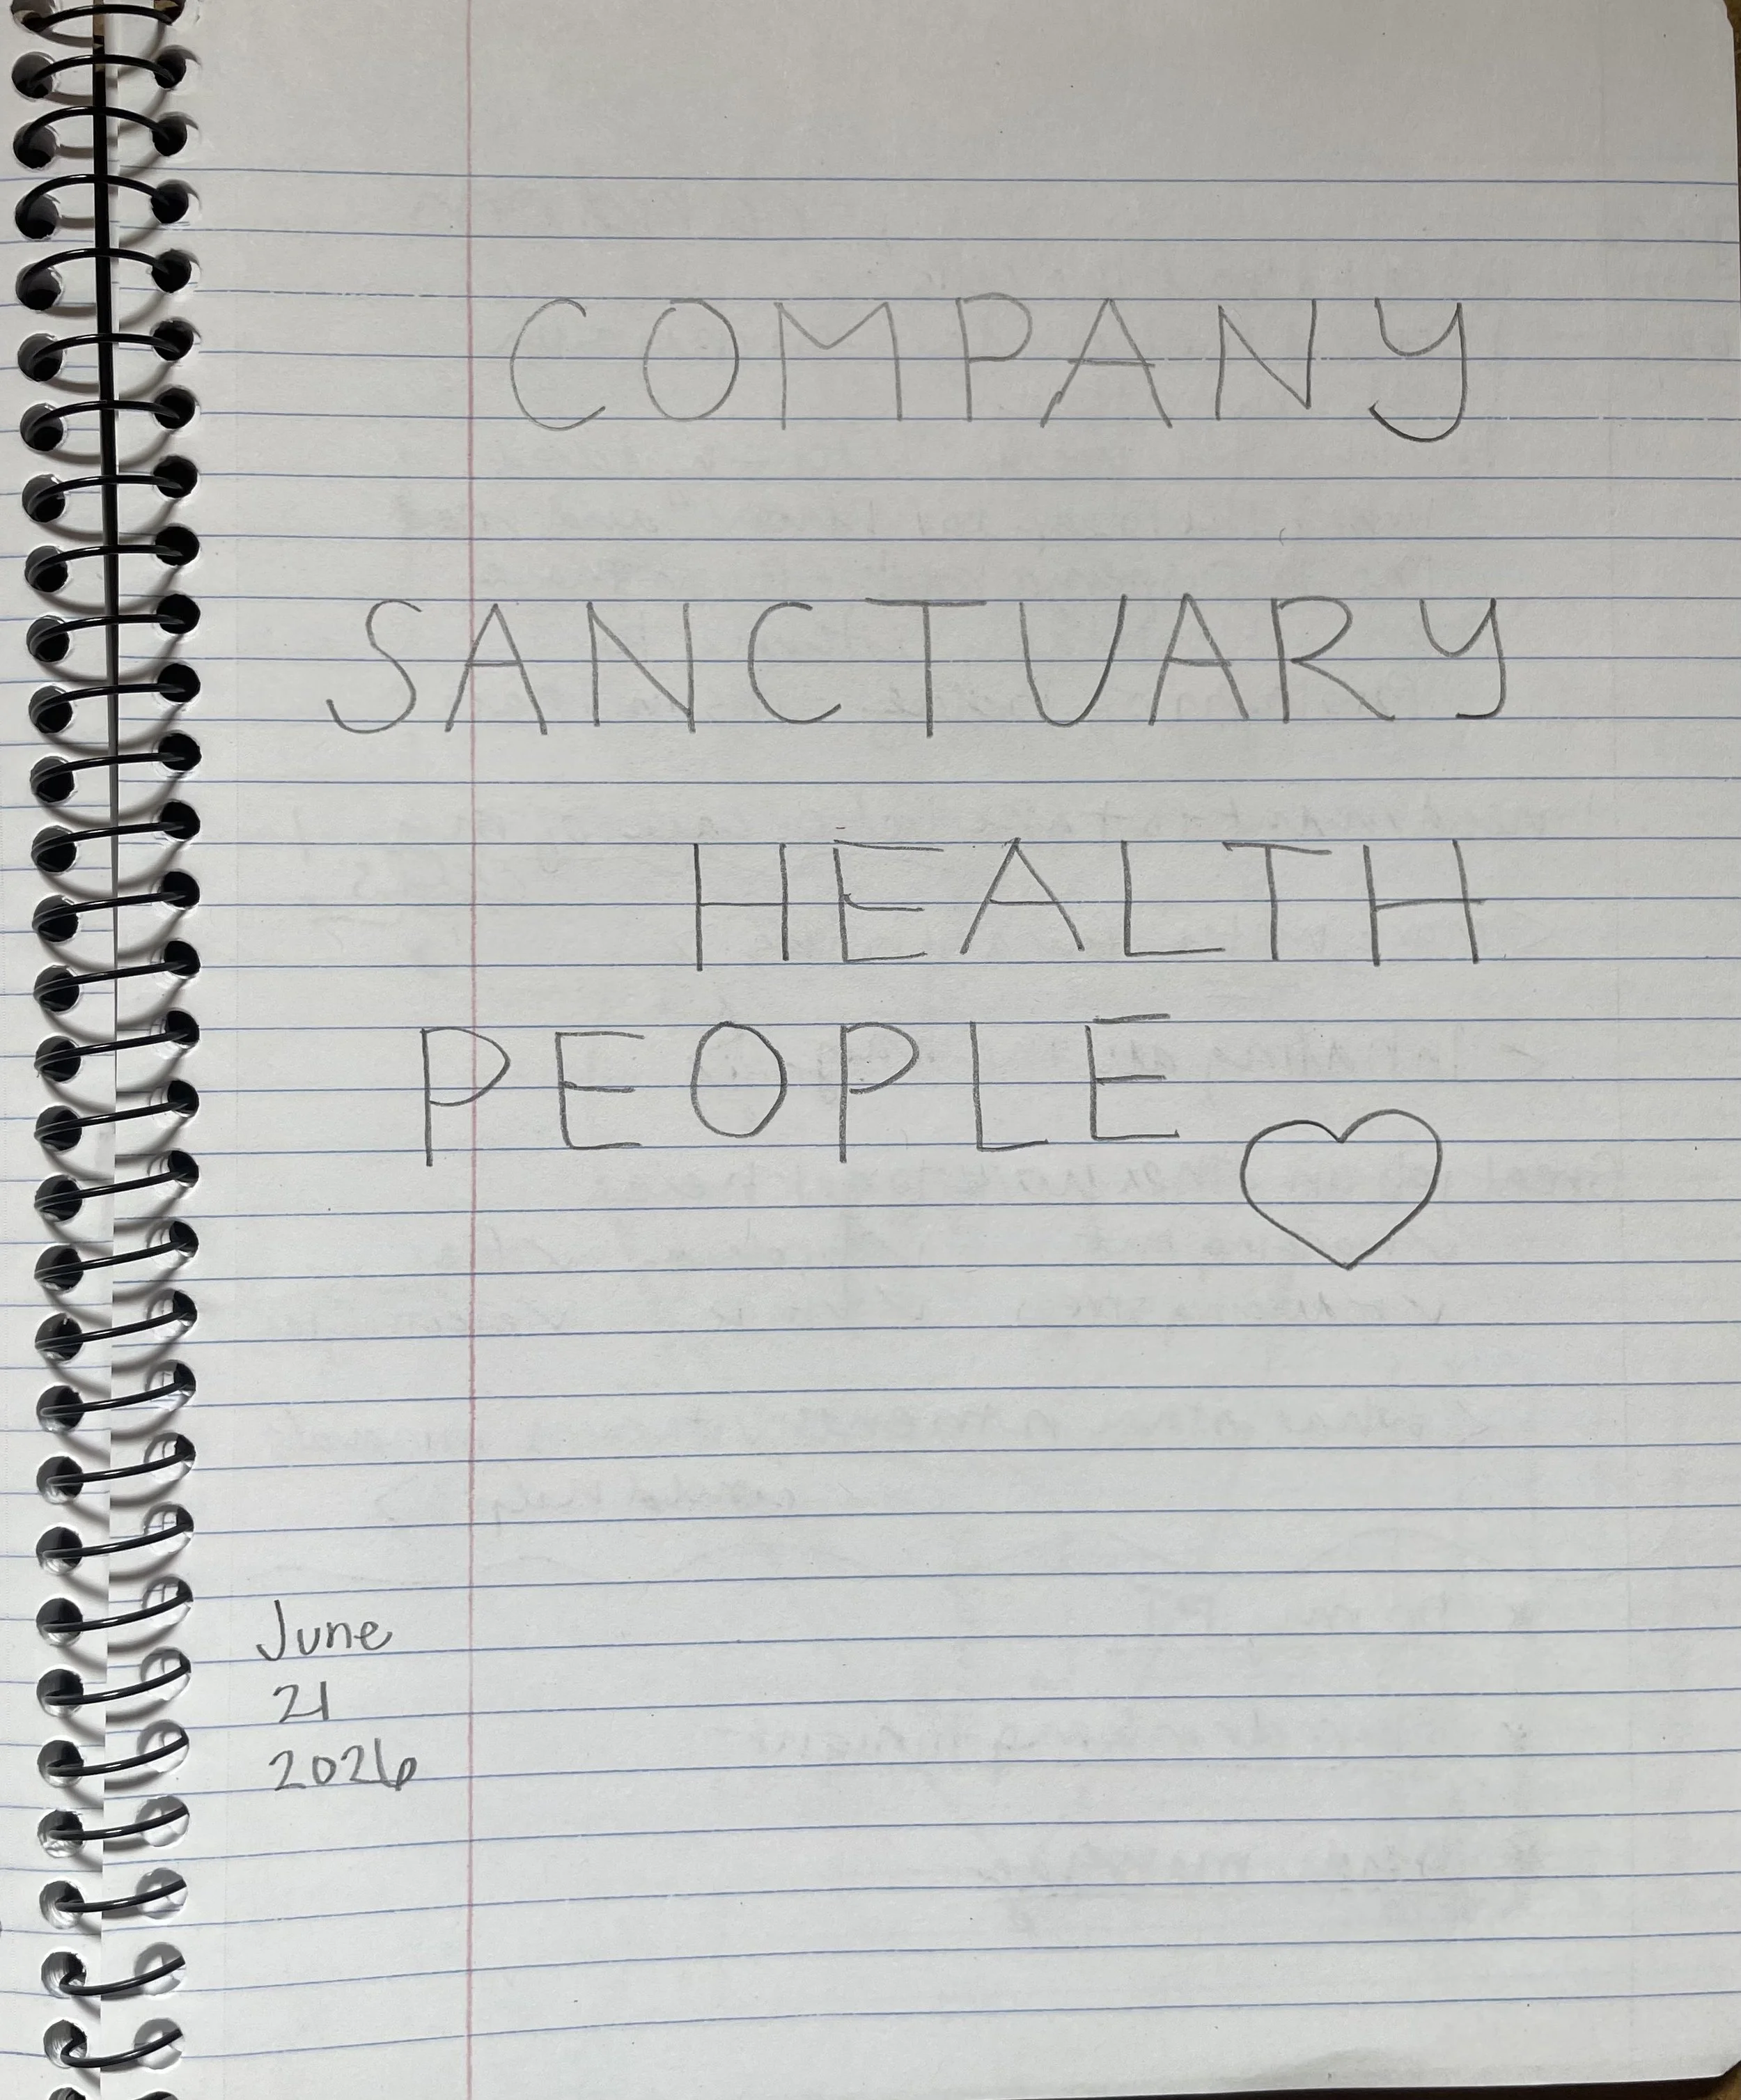 COMPANY
SANCTUARY
HEALTH
PEOPLE
June
21
2026